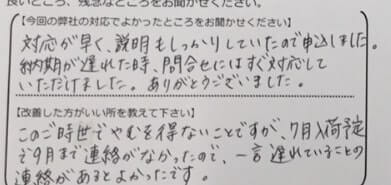 良いところ、残念なところをお聞かせください。
【今回の弊社の対応でよかったところをお聞かせください】
対応が早く、説明もしっかりしていたので申込しました。
納期が遅れた時、問合せにはすぐ対応して
いただけました。ありがとうございました。
【改善した方がいい所を教えて下さい】
このご時世でやむを得ないことですが、7月入荷予定
で9月まで連絡がなかったので、一言遅れていることの
連絡があるとよかったです。